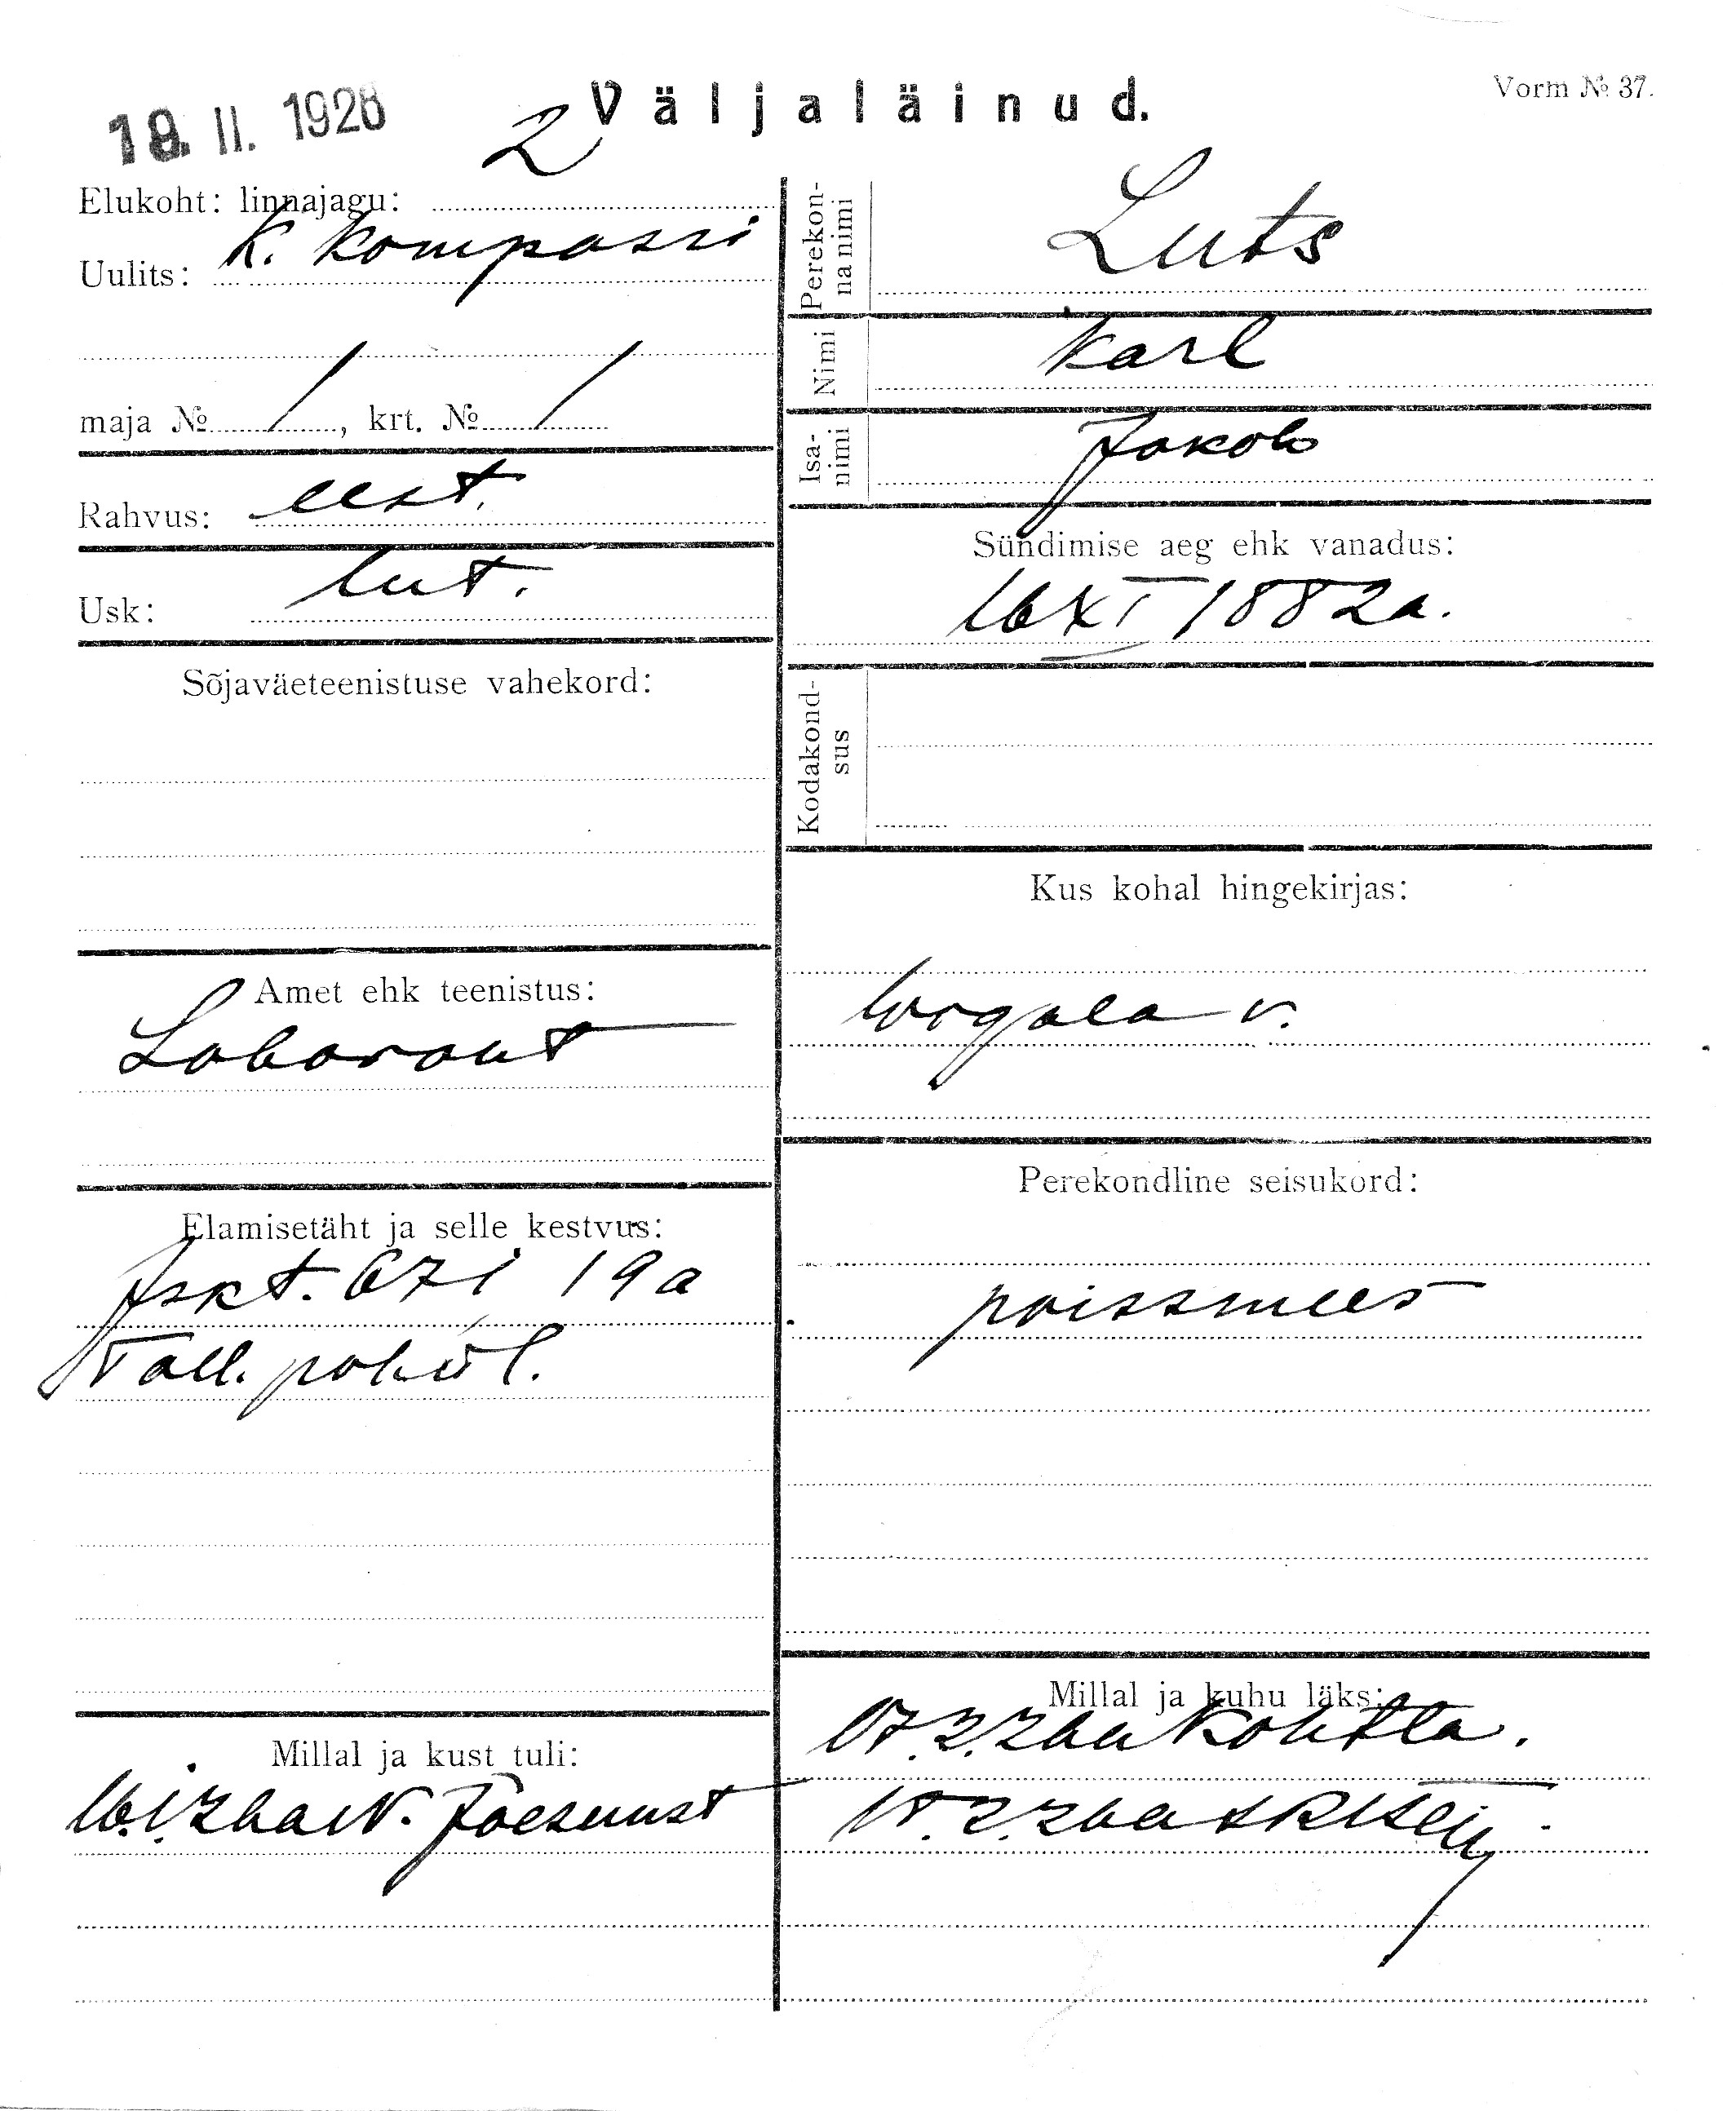 18. II. 1926
Väljaläinud.
Vorm № 37.
Elukoht: linnajagu: 2
Uulits: K. Kompassi
maja № 1, krt. № 1
Rahvus: eest.
Usk: lut.
Sõjaväeteenistuse vahekord:
Amet ehk teenistus:
Laborant
Elamisetäht ja selle kestvus:
Iskt. 671 19a
Tall. pol. ül.
Millal ja kust tuli:
16.1.26a N. Jõesuust
Perekonnanimi Luts
Nimi Karl
Isanimi Jakob
Sündimise aeg ehk vanadus:
16 XI 1882a.
Kodakondsus
Kus kohal hingekirjas:
Wogala v.
Perekondline seisukord:
poissmees
Millal ja kuhu läks:
17.2.26a Kohtla.
18.2.26a